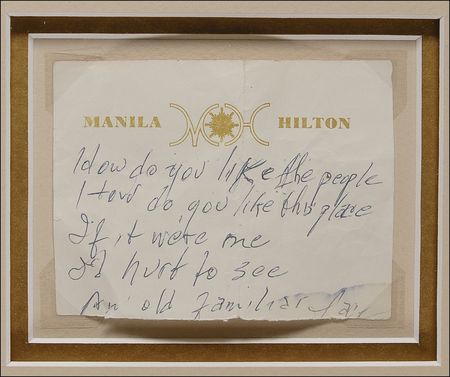 MANILA HILTON
How do you like the people
How do you like this place
If it were me
I'd hurt to see
An old familiar